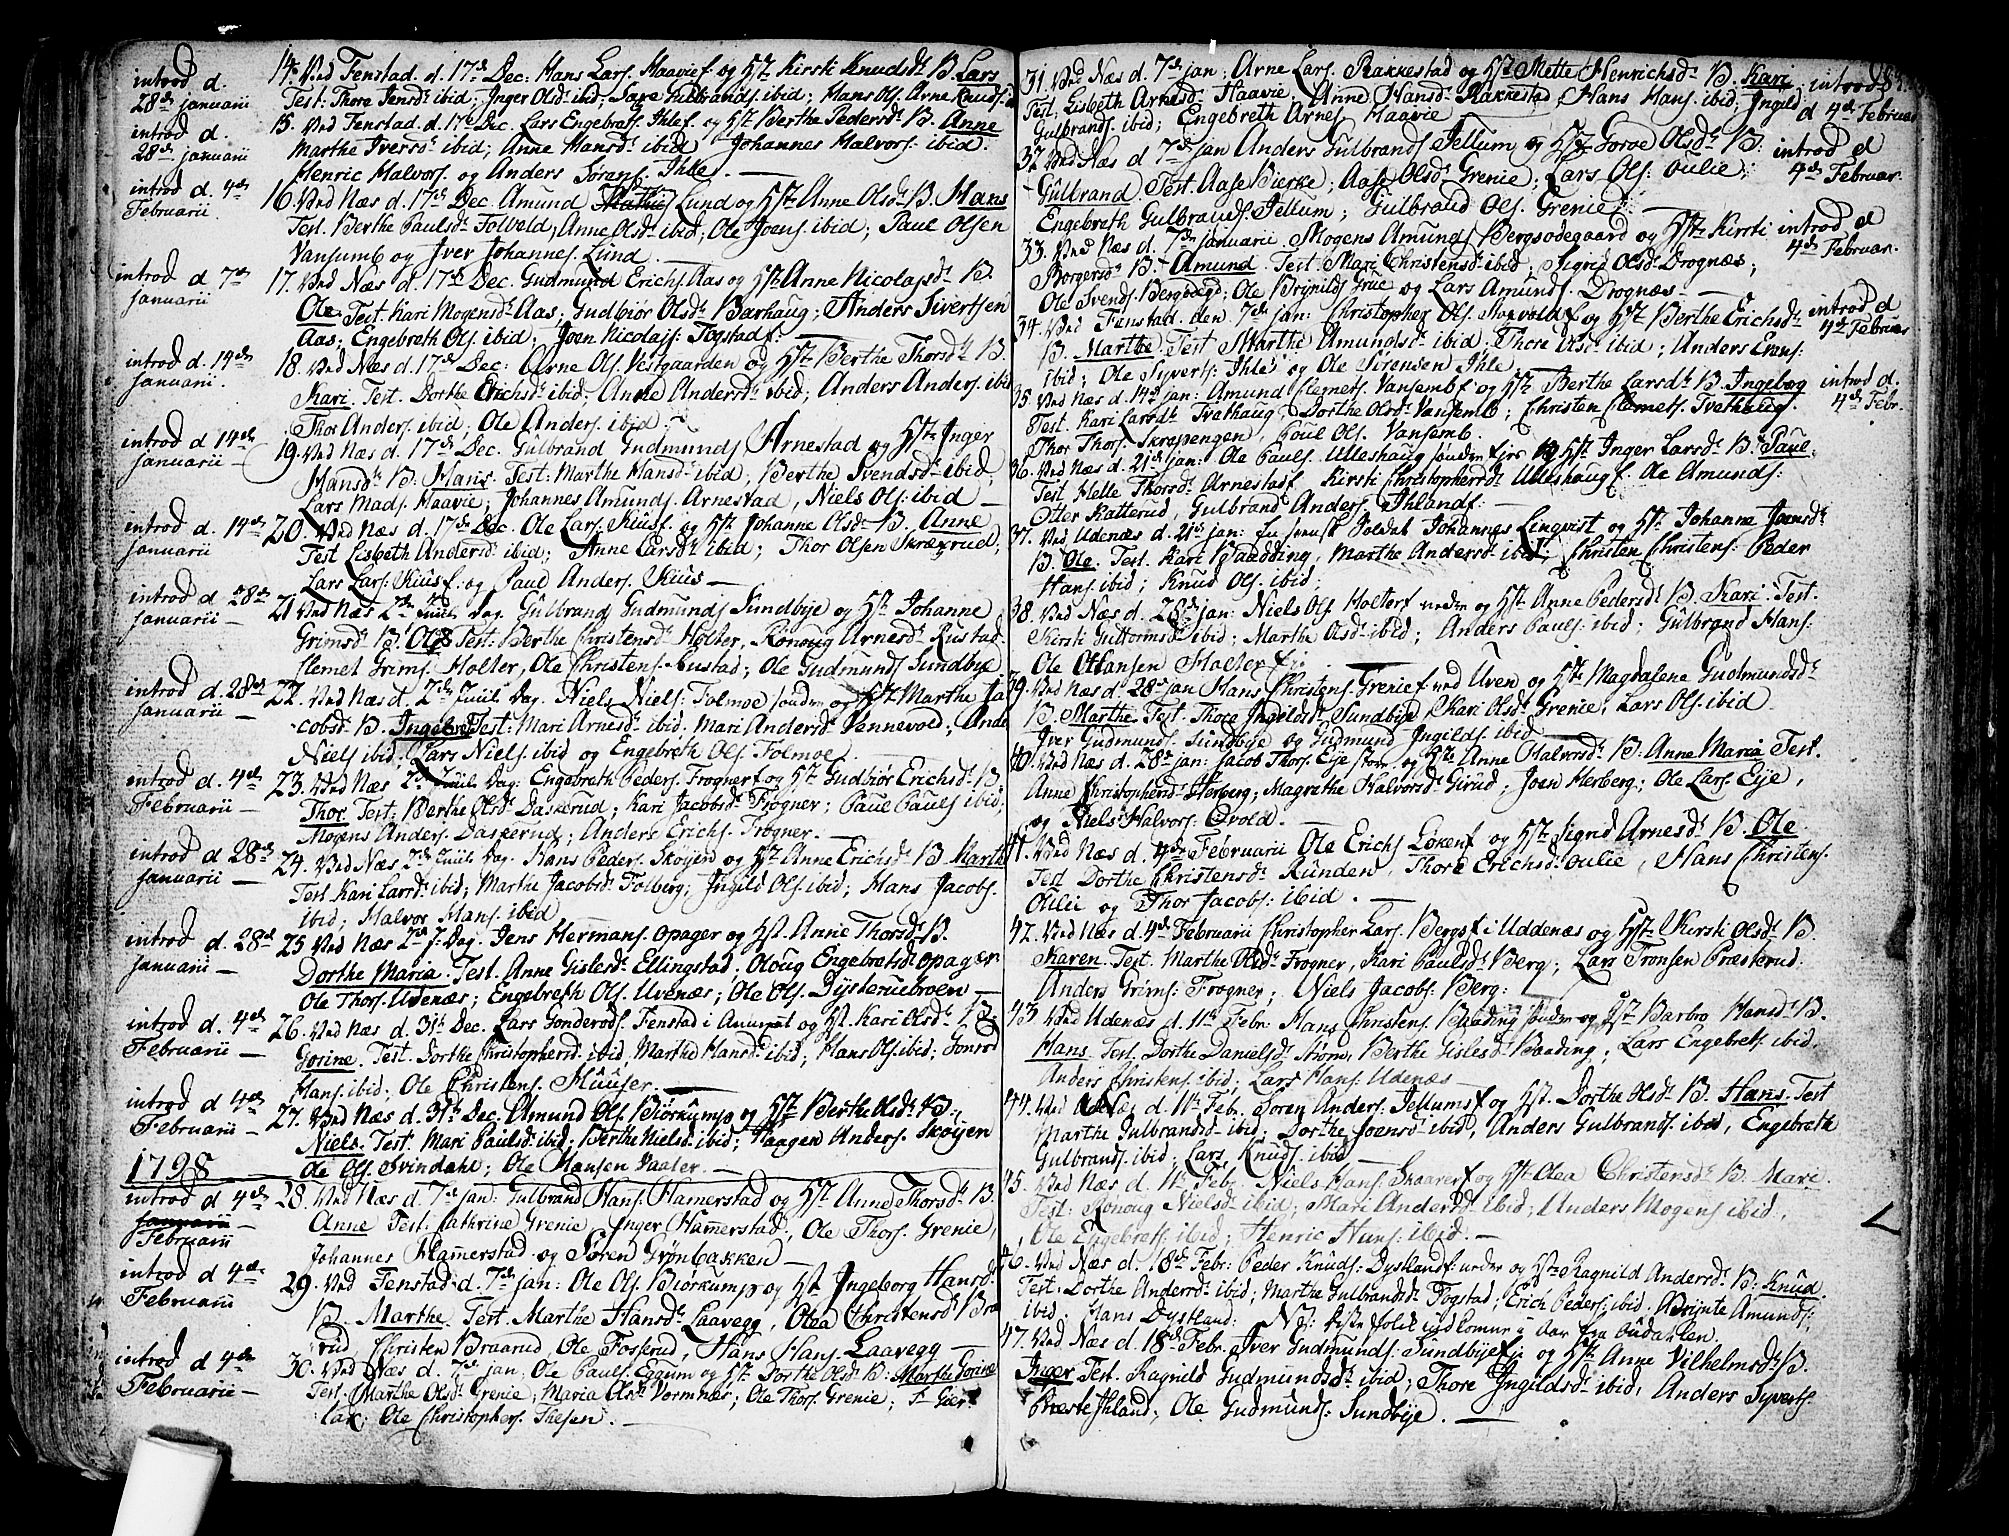 introd d. 28de januarii
14. Ved Fenstad d. 17de Dec: Hans Lars. Haavie og H. Kirsti Knudsd. B. Lars
Test: Thore Jensd. ibid; Inger Olsd. ibid; Lars Gulbrands. ibid; Hans Ols. Arne Knuds.
introd d. 28de januarii
15. Ved Fenstad d. 17de Dec. Lars Engebrets. Ihle og H. Berthe Pedersd. B. Anne
Marthe Iversd. ibid; Anne Hansd. ibid Johannes Halvors. ibid.
Henric Halvors. og Anders Sörens. Ihle.
introd d. 4de Februarii
16. Ved Næs d. 17de Dec. Amund Lund og H. Anne Olsd. B. Hans
Test. Berthe Paulsd. Folvald, Anne Olsd. ibid; Ole Joens. ibid; Paul Olsen
Vansumb og Iver Johannes. Lund.
introd d 7de januarii
17. Ved Næs d. 17de Dec. Gudmund Erichs. Aas og H. Anne Nicolajsd. B.
Ole. Test. Kari Mogensd. Aas; Gudbiör Olsd. Barhaug; Anders Sivertsen
Aas; Engebreth Ols. ibid; Joen Nicolajs. Fogstad.
introd d. 14de januarii.
18. Ved Næs d. 17de Dec: Arne Ols. Vestgaarden og H. Berthe Thorsd. B.
Kari. Test. Dorthe Erichsd. ibid; Anne Andersd. ibid; Anders Anders. ibid
Thor Anders. ibid; Ole Anders. ibid;
introd d 14de januarii
19. Ved Næs d. 17de Dec. Gulbrand Gudmunds. Arnestad og H. Inger
Hansd. B. Hans. Test: Marthe Hansd. ibid, Berthe Svendsd. ibid,
Lars Mads. Haavie; Johannes Amunds. Arnestad, Niels Ols. ibid
introd d. 14de januarii
20. Ved Næs d. 17de Dec. Ole Lars. Kius og H. Johanne Olsd. B. Anne
Test Lisbeth Andersd. ibid; Anne Larsd. ibid; Thor Olsen Skræxrud;
Lars Lars. Kius og Paul Anders. Kius
introd d 28de januarii
21 Ved Næs 2den Juul Dag. Gulbrand Gudmunds Sundbye og H. Johanne
Grimsd. B. Ole Test. Berthe Christensd. Holter, Rönoug Arnesd. Rustad
Clemet Grims. Holter, Ole Christens. Rustad; Ole Gudmunds Sundbye
introd d. 28de januarii
22. Ved Næs d. 2den Juul Dag. Niels Niels. Folmoe sönden og H. Marthe Ja
cobsd. B. Ingebor Test: Mari Arnesd. ibid, Mari Andersd. Vennevold, Ande
Niels ibid. Lars Niels. ibid og Engebreth Ols. Folmoe
introd d. 4de Februarii
23. Ved Næs 2den Juul Dag: Engebreth Peders. Frogner og H. Gudbiör Erichsd. B
Thor. Test: Berthe Olsd. Daskerud; Kari Jacobsd. Frogner; Paul Pauls ibid;
Mogens Anders. Daskerud; Anders Erichs. Frogner.
introd d 28de januarii
24. Ved Næs 2den Juul Dag. Hans Peders. Skoyen og H. Anne Erichsd. B. Marth
Test Kari Larsd. ibid; Marthe Jacobsd. Folberg; Ingild Ols. ibid; Hans Jacobs.
ibid; Halvor Hans. ibid
introd d. 28de januarii
25 Ved Næs 2den J. Dag. Jens Hermans. Opager og H. Anne Thorsd. B.
Dorthe Maria. Test. Anne Gislesd. Ellingstad. Oloug Engebretsd. Opager
Ole Thors. Udenæs; Engebreth Ols. Uvenæs; Ole Ols. Dysteruebroen
introd d. 4de Februarii
26. Ved Næs d. 31te Dec. Lars Gonderods. Fenstad i og H. Kari Olsd. B.
Gorine. Test. Dorthe Christophersd. ibid, Marthe Hansd. ibid; Hans Ols. ibid; Gonrod
Hans. ibid; Ole Christens. Huuser.
introd d 4de Februarii
27. Ved Næs d. 31te Dec. Amund Ols. Biörkump og H. Berthe Olsd. B.
Niels. Test. Mari Paulsd. ibid; Berthe Nielsd. ibid; Haagen Anders. Skoyen
Ole Ols. Svindahl; Ole Hansen Vaaler.
1798
introd d 4de Februarii
28. Ved Næs d. 7de jan: Gulbrand Hans. Hamerstad og H. Anne Thorsd. B.
Anne Test. Cathrine Grenie, Inger Hamerstad, Ole Thors. Grenie,
Johannes Hamerstad og Sören Grönbakken
introd d 4de Februarii
29. Ved Fenstad d. 7de jan: Ole Ols. Biörkump og H. Ingeborg Hansd.
B. Marthe Test. Marthe Hansd. Laavegg, Olea Christensd. Bra
rud, Christen Braarud, Ole Fosserud, Hans Hans. Laavegg
introd d 4de Februarii
30. Ved Næs d. 7de jan, Ole Pauls. Eggum og H. Dorthe Olsd. B. Marthe Gorine
Test. Marthe Olsd. Grenie; Maria Olsd. Vormnæs; Ole Thors. Grenie;
Ole Christophers. Thesen.
31. Ved Næs d. 7de jan: Arne Lars. Rakkestad og H. Mette Henrichsd. B. Kari
introd
d 4de Februar
Test. Lisbeth Arnesd. Haavie, Anne Hansd. Rakkestad, Hans Hans. ibid; Ingild
Gulbrands. ibid; Engebreth Arnes. Haavie
32. Ved Næs d 7de jan Anders Gulbrands. Jellum og H. Goroe Olsd. B.
introd d
4de Februar.
Gulbrand. Test. Aase Bierke; Aase Olsd. Grenie; Lars Ols. Oulie;
Engebreth Gulbrands. Jellum; Gulbrand Ols. Grenie.
33. Ved Næs d. 7de januarii. Mogens Amunds. Bergsödegaard og H. Kirsti
introd d
4de Februar.
Borgersd. B. Amund. Test. Mari Christensd. ibid; Sigrid Olsd. Drognæs;
Ole Svends. Bergsödegd; Ole Brynilds. Grue og Lars Amunds. Drognæs
34. Ved Fenstad. den 7de jan: Christopher Ols. og H. Berthe Erichsd.
introd d
4de Februar
B. Marthe Test Marthe Amundsd. ibid; Thore Olsd. ibid; Anders Evens.
ibid; Ole Syverts. Ihle og Ole Sörensen Ihle
35. Ved Næs d. 14de jan: Amund Clemets. Vansemb og H. Berthe Larsd. B. Ingebog
introd d.
4de Febr.
Test. Kari Larsd. Tvethaug, Dorthe Olsd. Vansemb; Christen Clemets. Tvethaug.
Thor Thors. Skrapengen, Poul Ols. Vansemb.
36. Ved Næs d. 21de jan: Ole Pauls. Ulleshaug sönden og H. Inger Larsd. B. Paul.
Test Helle Thorsd. Arnestad Kirsti Christophersd. Ulleshaug Ole Amunds:
Otter Ratterud, Gulbrand Anders. Ihland:
37. Ved Udenæs d. 21de jan: En Soldat Johannes Linqvist og H. Johanne Joensd.
B. Ole. Test. Kari Baadding, Marthe Andersd. ibid, Christen Christens: Peder
Hans. ibid; Knud Ols. ibid:
38. Ved Næs d. 28de jan: Niels Ols. Holter og H. Anne Pedersd. B. Kari. Test.
Kirsti Guttormsd. ibid; Marthe Olsd. ibid; Anders Pauls. ibid; Gulbrand Hans.
Ole Hansen Holter
39. Ved Næs d. 28de jan Hans Christens. Grenie ved Uven og H. Magdalene Gudmundsd.
B. Marthe. Test. Thore Ingildsd. Sundbye, Kari Olsd. Grenie, Lars Ols. ibid
Iver Gudmunds. Sundbye og Gudmund Ingilds. ibid
40. Ved Næs d. 28de jan: Jacob Thors. Eye og H. Anne Halvorsd. B. Anne Maria Test.
Anne Christophersd. Herberg; Magrethe Halvorsd. Girud; Joen Herberg; Ole Lars. Eye,
og Niels Halvors. Ovold.
41. Ved Næs d. 4de Februarii Ole Erichs. Löken og H. Sigrid Arnesd. B. Ole.
Test Dorthe Christensd. Runden, Thore Erichsd. Oulie, Hans Christens.
Oulie og Thor Jacobs: ibid.
42. Ved Næs d. 4de Februarii Christopher Lars. Bergs i Uddenæs og H. Kirsti Olsd. B.
Karen. Test. Marthe Olsd. Frogner, Kari Paulsd. Berg; Lars Tronsen Præsterud.
Anders Grims. Frogner; Niels Jacobs: Berg:
43 Ved Udenæs d. 11te Febr. Hans Christens. Baading sönden og H. Barbro Hansd. B.
Hans Test. Dorthe Danielsd. Berthe Gislesd. Baading; Lars Engebrets. ibid.
Anders Christens. ibid; Lars Hans. Udenæs
44. Ved Næs d. 11te Febr. Sören Anders. Jellum og H. Dorthe Olsd. B. Hans. Test
Marthe Gulbrandsd. ibid; Dorthe Joensd. ibid, Anders Gulbrands. ibid, Engebreth
Gulbrands. ibid, Lars Knuds. ibid
45. Ved Næs d. 11te Febr. Niels Hans. Skaarer og H. Olea Christensd. B. Mari.
Test: Rönoug Nielsd. ibid; Mari Andersd. ibid; Anders Mogens ibid.,
Ole Engebrets. ibid; Henric Hans. ibid.
46. Ved Næs d. 18de Febr: Peder Knuds. Dysland og H. Ragnild Andersd. B. Knud.
Test. Dorthe Andersd. ibid; Marthe Gulbrandsd. Fogstad; Erich Peders. ibid. Brynte Amunds.
ibid; Hans Dysland: NB: disse folk indkomne i Aar fra Oudahlen.
47. Ved Næs d. 18de Febr. Iver Gudmunds. Sundbye og H. Anne Vilhelmsd. B.
Inger Test. Ragnild Gudmundsd. ibid; Thore Ingildsd. ibid, Anders Syverts.
Ihland, Ole Gudmunds: Sundbye.